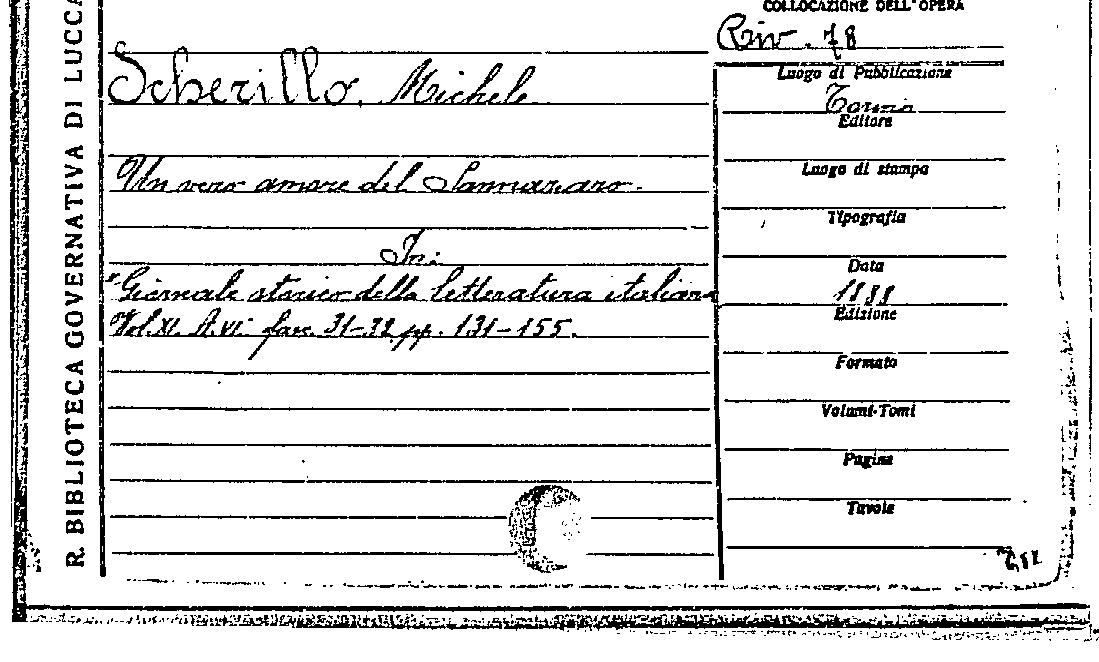 R. BIBLIOTECA GOVERNATIVA DI LUCCA
COLLOCAZIONE DELL'OPERA
Riv. 78
Scherillo, Michele
Un vero amore del Sannazaro.
In:
"Giornale storico della letteratura italiana
Vol. XI. A. VI. fasc. 31-32 pp. 131-155.
Luogo di Pubblicazione
Torino
Editore
Luogo di stampa
Tipografia
Data
1888
Edizione
Formato
Volumi-Tomi
Pagine
Tavole